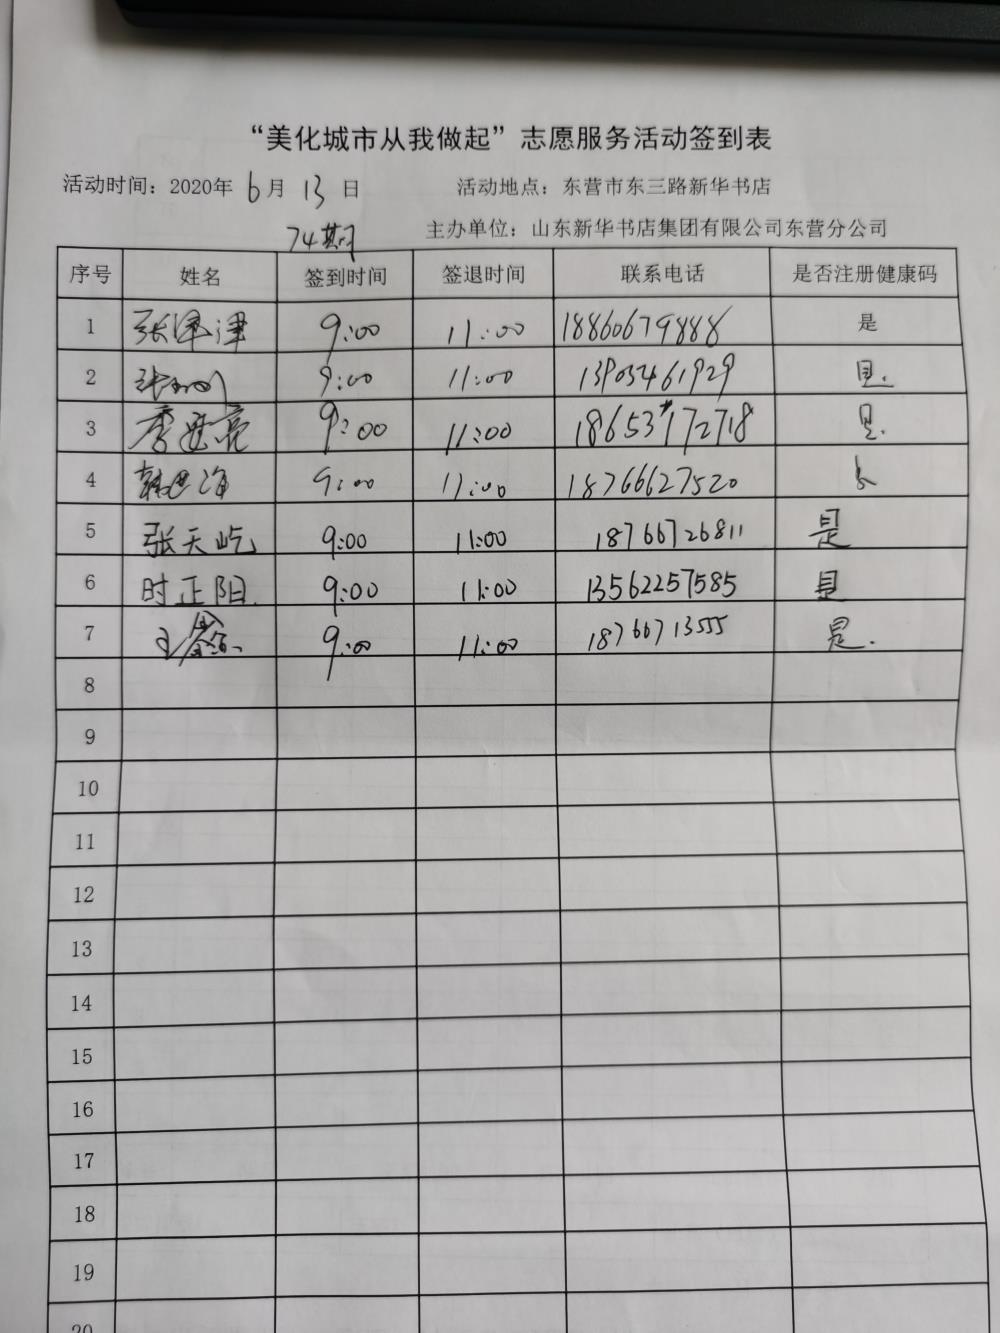 “美化城市从我做起”志愿服务活动签到表
活动时间：2020年 6月 13 日 活动地点：东营市东三路新华书店
74期 主办单位：山东新华书店集团有限公司东营分公司
序号 姓名 签到时间 签退时间 联系电话 是否注册健康码
1 张津 9:00 11:00 18860679888 是
2 张 9:00 11:00 13903461929 是.
3 李进亮 9:00 11:00 18653172718 是.
4 韩海 9:00 11:00 18766627520
5 张天屹 9:00 11:00 18766726811 是
6 时正阳. 9:00 11:00 13562257585 是
7 王 9:00 11:00 18766713555 是.
8
9
10
11
12
13
14
15
16
17
18
19
20